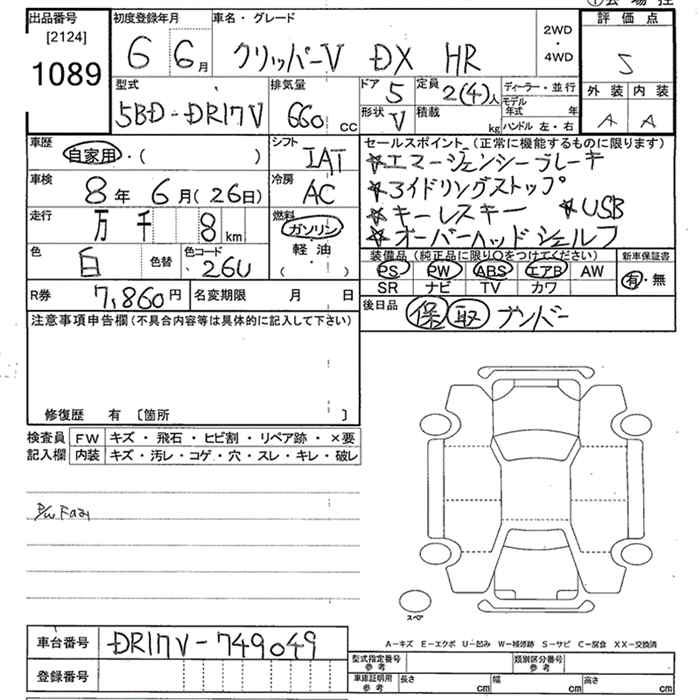 出品番号
[2124]
1089
初度登録年月
6 6月
車名・グレード
クリッパーV DX HR
2WD
・
4WD
評価点
S
外装 内装
A A
型式
5BD-DR17V
排気量
660 cc
ドア 5
形状 V
定員 2(4)人
積載 kg
ディーラー・並行
モデル年式 年
ハンドル 左・右
車歴
自家用・( )
シフト
IAT
車検
8年 6月(26日)
冷房
AC
走行
万 千 8 km
燃料
ガソリン
・
軽油
( )
色
白
色替
色コード
26U
R券
7,860円
名変期限 月 日
セールスポイント (正常に機能するものに限ります)
☆エマージェンシーブレーキ
☆アイドリングストップ
☆キーレスキー ☆USB
☆オーバーヘッドシェルフ
装備品 (純正品に限り○をつけてください)
PS PW ABS エアB AW
SR ナビ TV カワ
新車保証書
有・無
後日品
保 取 ナンバー
注意事項申告欄(不具合内容等は具体的に記入して下さい)
修復歴 有 〔箇所 〕
検査員記入欄
FW キズ・飛石・ヒビ割・リペア跡・×要
内装 キズ・汚レ・コゲ・穴・スレ・キレ・破レ
スペア
A-キズ E-エクボ U-凹み W-補修跡 S-サビ C-腐食 XX-交換済
車台番号
DR17V-749049
登録番号
型式指定番号 参考
類別区分番号 参考
車庫証明用 参考
長さ cm
幅 cm
高さ cm